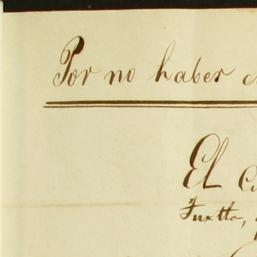 Por no haber
El
Tuxtla,